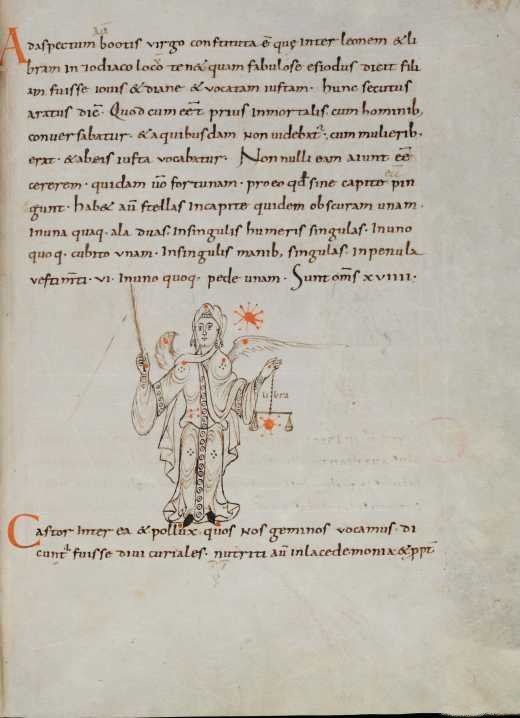 Adaspectum bootis virgo constituta ē quę inter leonem & li
bram in zodiaco loco ten& quam fabulose esiodus dicit fili
am fuisse iovis & diane & vocatam iustam · hunc secutus
aratus dic̄ · Quod cum eēt prius inmortalis cum hominib;
conversabatur · & aquibusdam non videbat², cum mulierib;
erat · & abeis iusta vocabatur · Nonnulli eam aiunt eē
cererem · quidam ūo fortunam · pro eo qđ sine capite pin
gunt · hab& aū stellas in capite quidem obscuram unam ·
in una quaq· ala duas · in singulis humeris singulas · in uno
quoq· cubito unam · in singulis manib; singulas · in penula
vestim̄ti · vi · in uno quoq· pede unam · Sunt om̄s xviiii ·
libra
Castor inter ea & pollux quos nos geminos vocamus · di
cunt² fuisse divi curiales · nutriti aū in lacedemonia & ꝓpt̄